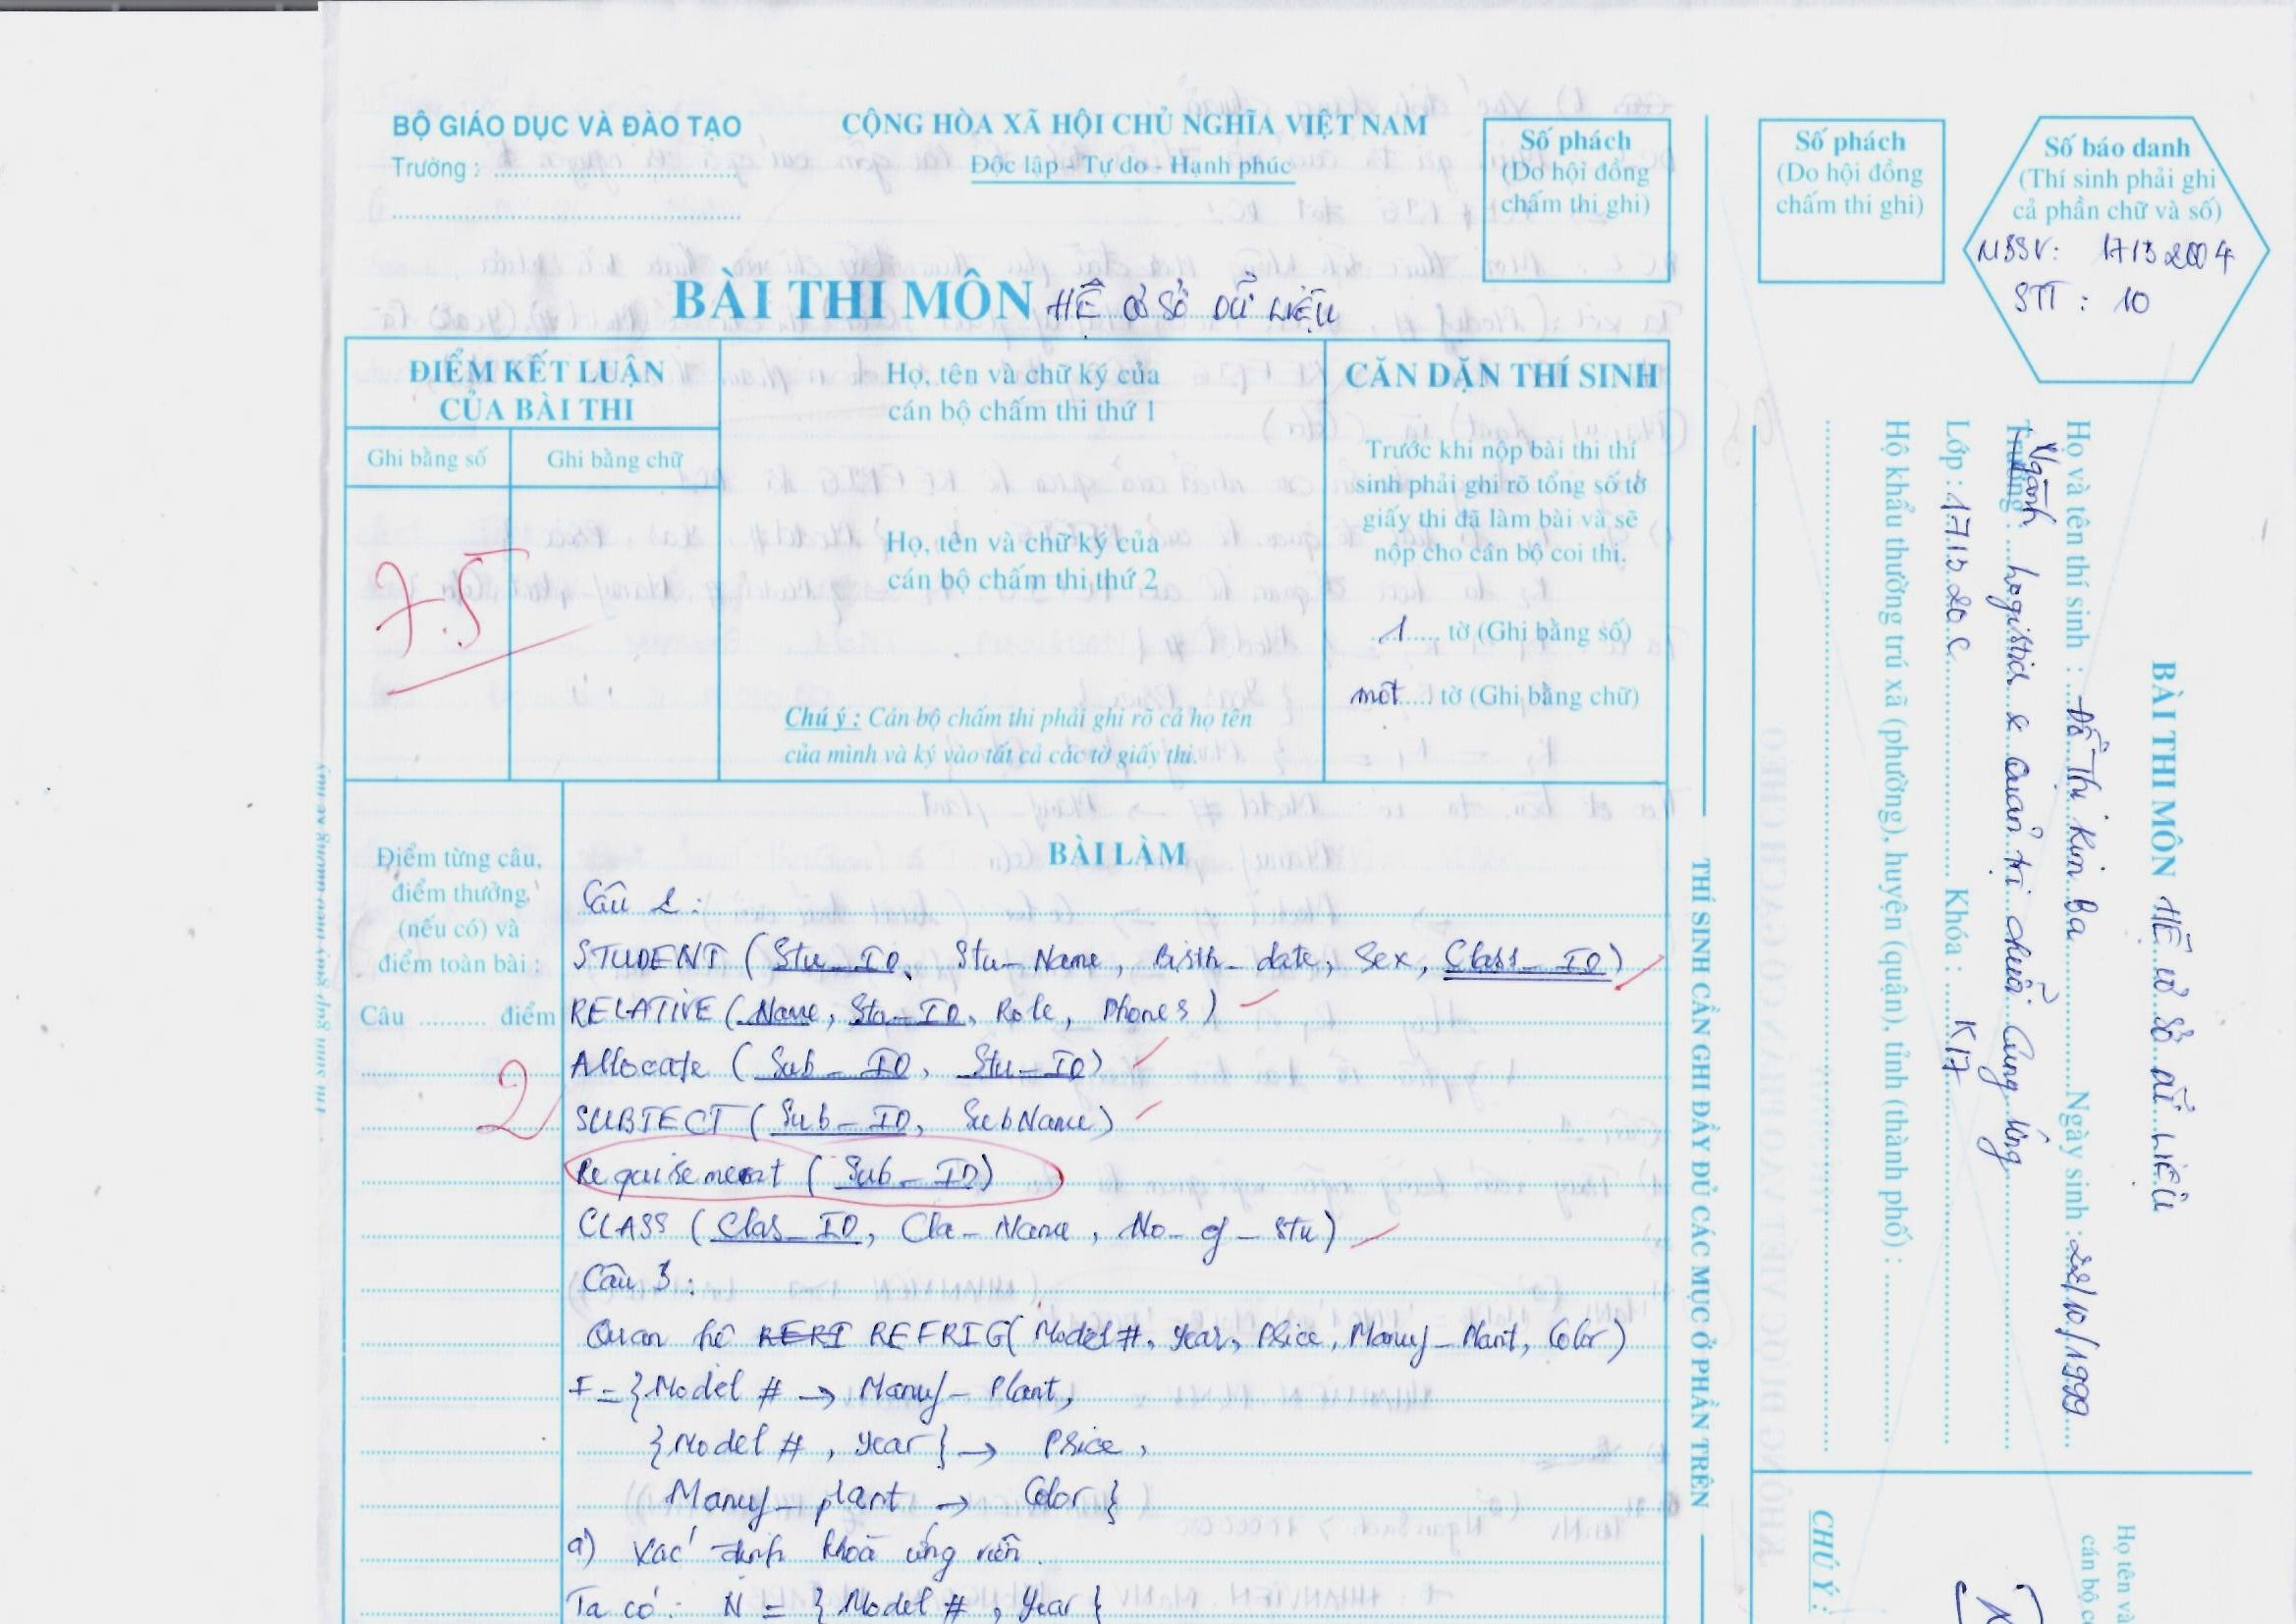 BỘ GIÁO DỤC VÀ ĐÀO TẠO
Trường :
CỘNG HÒA XÃ HỘI CHỦ NGHĨA VIỆT NAM
Độc lập - Tự do - Hạnh phúc
Số phách
(Do hội đồng
chấm thi ghi)
BÀI THI MÔN HỆ CƠ SỞ DỮ LIỆU
ĐIỂM KẾT LUẬN
CỦA BÀI THI
Ghi bằng số
Ghi bằng chữ
7.5
Họ, tên và chữ ký của
cán bộ chấm thi thứ 1
Họ, tên và chữ ký của
cán bộ chấm thi thứ 2
Chú ý : Cán bộ chấm thi phải ghi rõ cả họ tên
của mình và ký vào tất cả các tờ giấy thi.
CĂN DẶN THÍ SINH
Trước khi nộp bài thi thí
sinh phải ghi rõ tổng số tờ
giấy thi đã làm bài và sẽ
nộp cho cán bộ coi thi.
1 tờ (Ghi bằng số)
một tờ (Ghi bằng chữ)
Điểm từng câu,
điểm thưởng
(nếu có) và
điểm toàn bài :
Câu .......... điểm
2
BÀI LÀM
Câu 2 :
STUDENT ( Stu_ID, Stu_Name, Birth_date, Sex, Class_ID)
RELATIVE ( Name, Stu_ID, Role, Phones )
Allocate ( Sub_ID, Stu_ID)
SUBJECT ( Sub_ID, SubName)
Requirement ( Sub_ID)
CLASS ( Clas_ID, Cla_Name, No_of_Stu)
Câu 3 :
Quan hệ REFRIG( Model #, Year, Price, Manuf_Plant, Color )
F = { Model # → Manuf_Plant,
{ Model #, Year } → Price,
Manuf_plant → Color }
a) Xác định khoá ứng viên.
Ta có : N = { Model #, Year }
THÍ SINH CẦN GHI ĐẦY ĐỦ CÁC MỤC Ở PHẦN TRÊN
Số phách
(Do hội đồng
chấm thi ghi)
Số báo danh
(Thí sinh phải ghi
cả phần chữ và số)
MSSV: 17132004
STT : 10
BÀI THI MÔN HỆ CƠ SỞ DỮ LIỆU
Họ và tên thí sinh : Đỗ Thị Kim Ba Ngày sinh : 22/10/1999
Ngành : Logistics & Quản trị chuỗi Cung ứng
Lớp : 17132DC Khóa : K17
Hộ khẩu thường trú xã (phường), huyện (quận), tỉnh (thành phố) :
CHÚ Ý :
Họ tên và
cán bộ